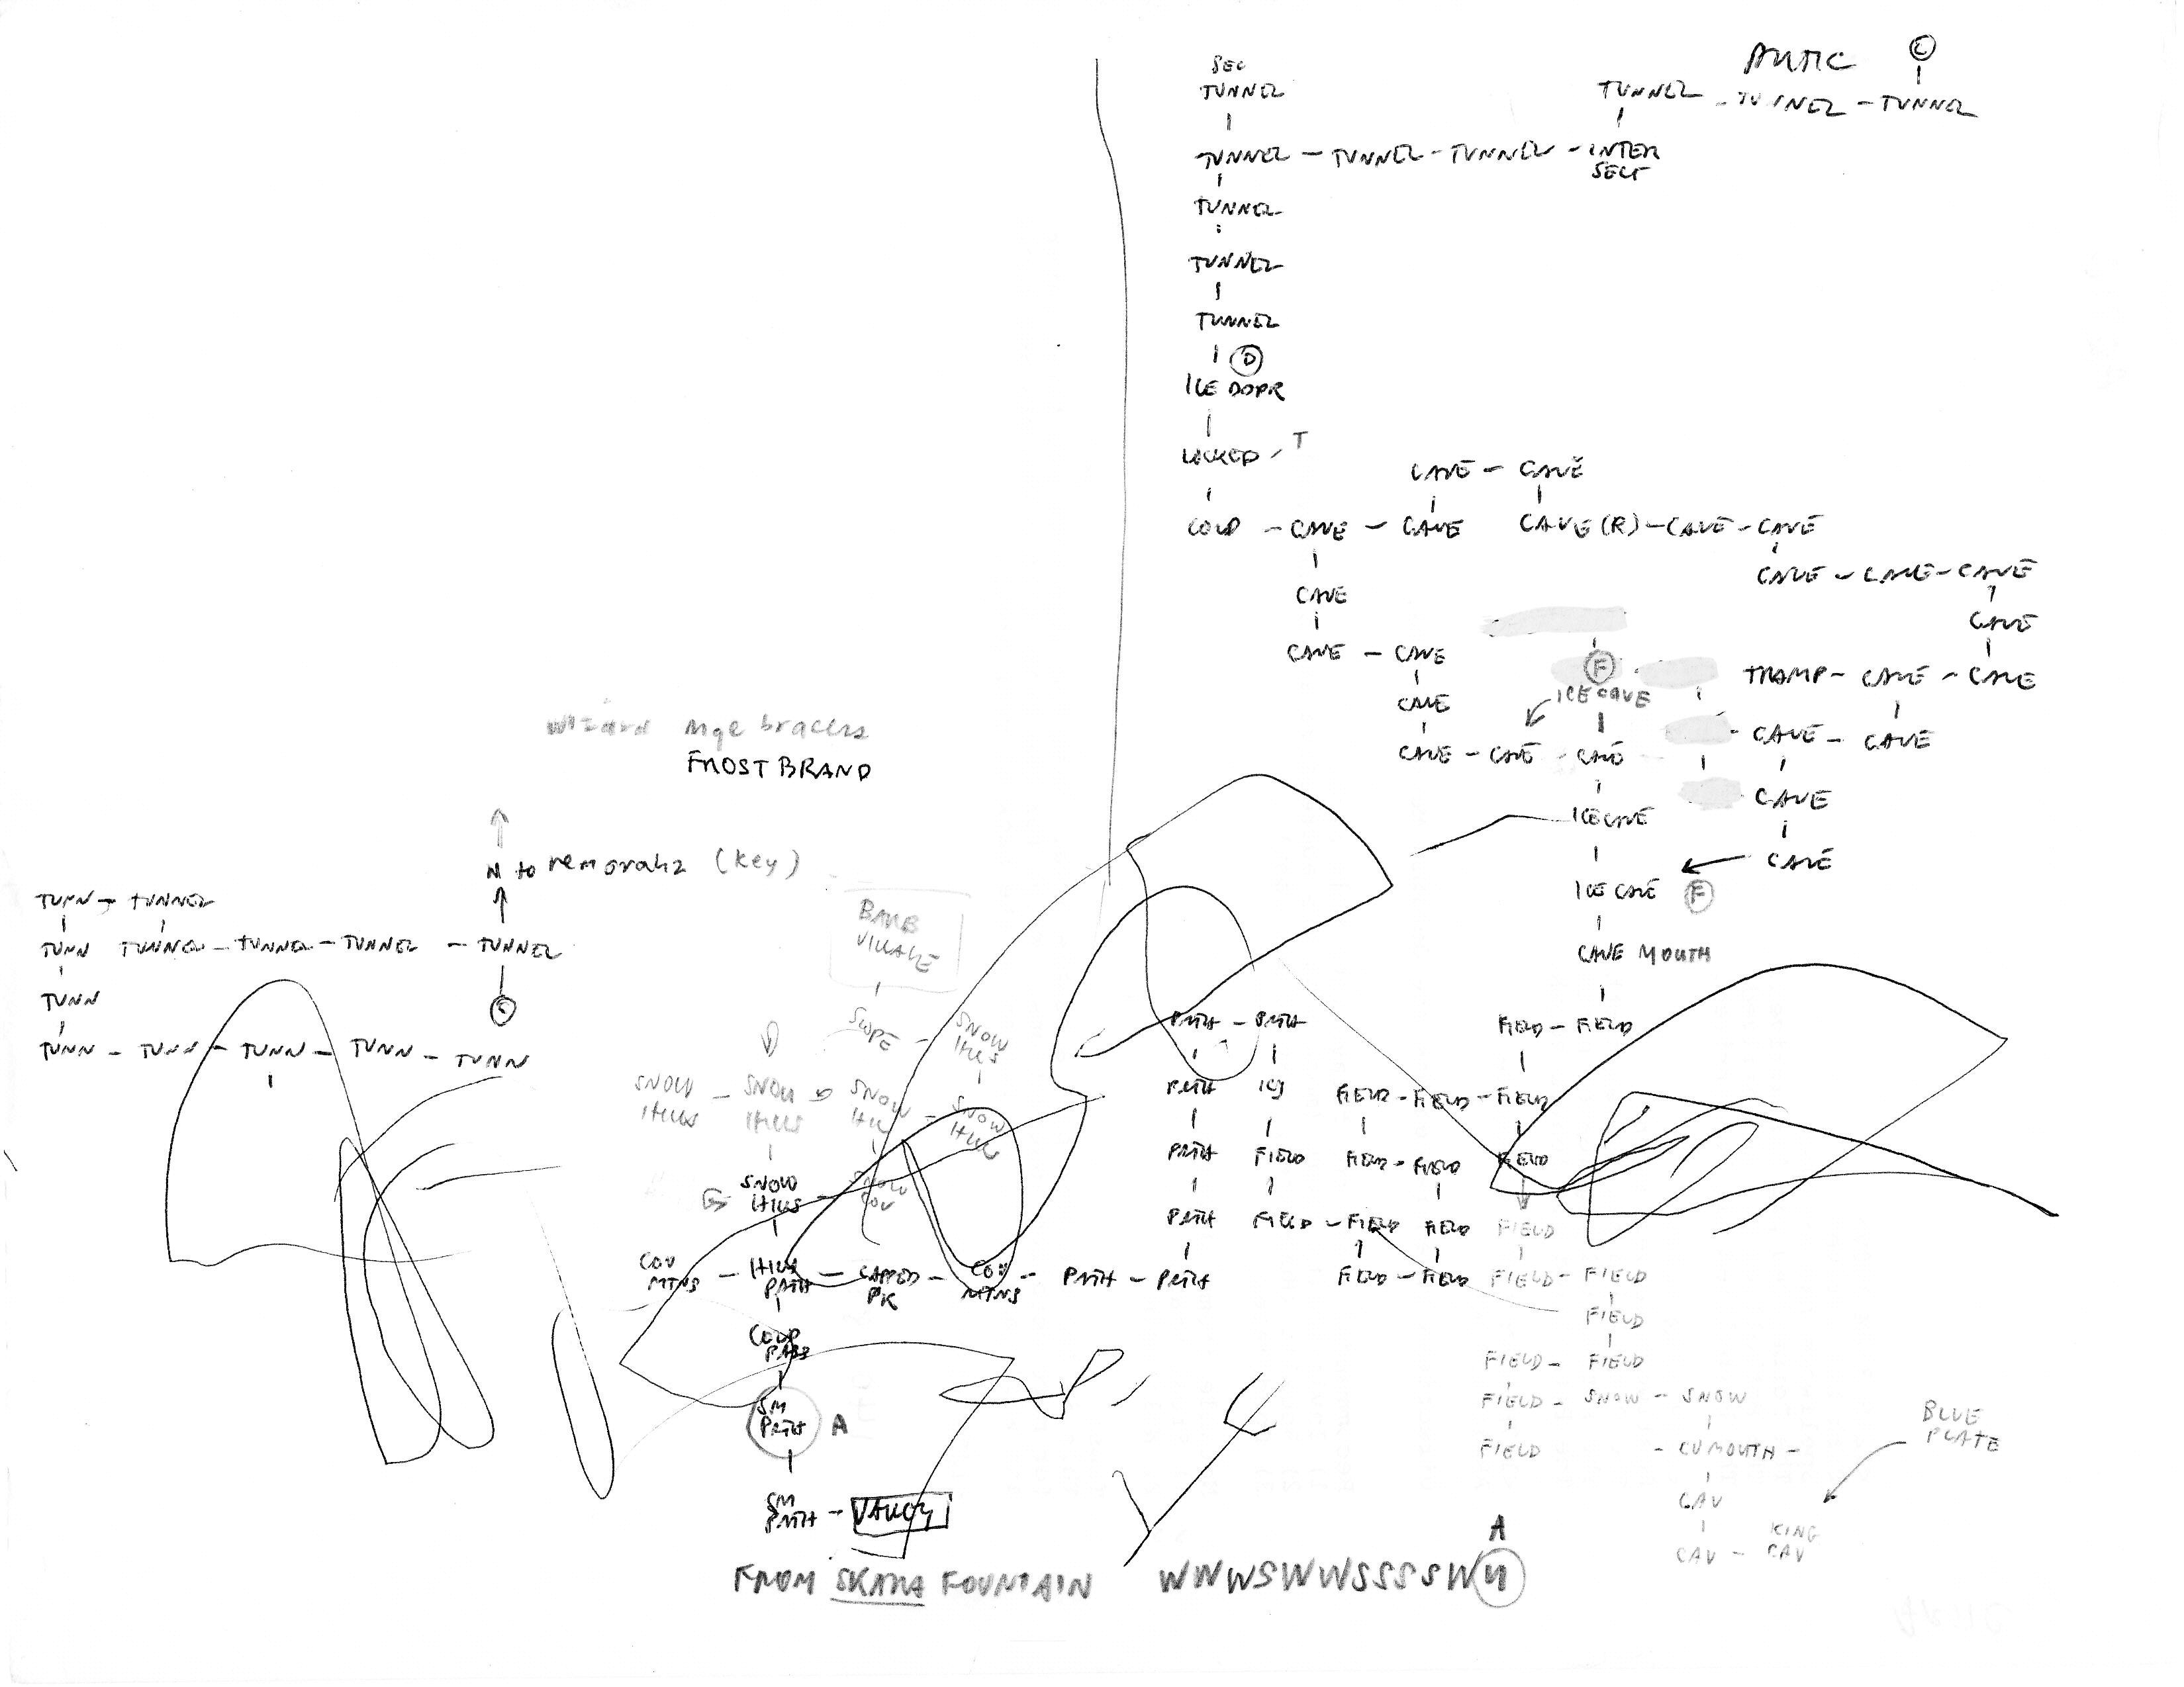 SEC
TUNNEL
TUNNEL - TUNNEL - TUNNEL - INTER
SECT
TUNNEL - TUNNEL - TUNNEL
C
TUNNEL
TUNNEL
TUNNEL
D
ICE DOOR
LOCKED / T
CAVE - CAVE
COLD - CAVE - CAVE CAVE (R) - CAVE - CAVE
CAVE - CAVE - CAVE
CAVE
CAVE
CAVE - CAVE
F
TRAMP - CAVE - CAVE
ICE CAVE
CAVE
CAVE - CAVE - CAVE
CAVE - CAVE
CAVE
ICE CAVE
CAVE
ICE CAVE F
CAVE MOUTH
wizard mge bracers
FROST BRAND
N to remorahz (key)
TUNN - TUNNEL
TUNN TUNNEL - TUNNEL - TUNNEL - TUNNEL
C
TUNN
TUNN - TUNN - TUNN - TUNN - TUNN
BARB
VILLAGE
SLOPE - SNOW
HILLS
SNOW
HILLS - SNOW
HILLS - SNOW
HILL - SNOW
HILL
SNOW
HILLS - SNOW
COV
COV
MTNS - HILLS
PATH - CAPPED
PK - COV
MTNS - PATH - PATH
COLD
PASS
SM
PATH A
SM
PATH - VALLEY
PATH - PATH
PATH ICY
PATH FIELD
PATH FIELD - FIELD FIELD
FIELD - FIELD
FIELD - FIELD
FIELD - FIELD - FIELD
FIELD - FIELD FIELD
FIELD
FIELD - FIELD
FIELD
FIELD - FIELD
FIELD - SNOW - SNOW
FIELD - CV MOUTH -
BLUE
PLATE
CAV
KING
CAV - CAV
FROM SKARA FOUNTAIN WNWSWWSSSSWN
A